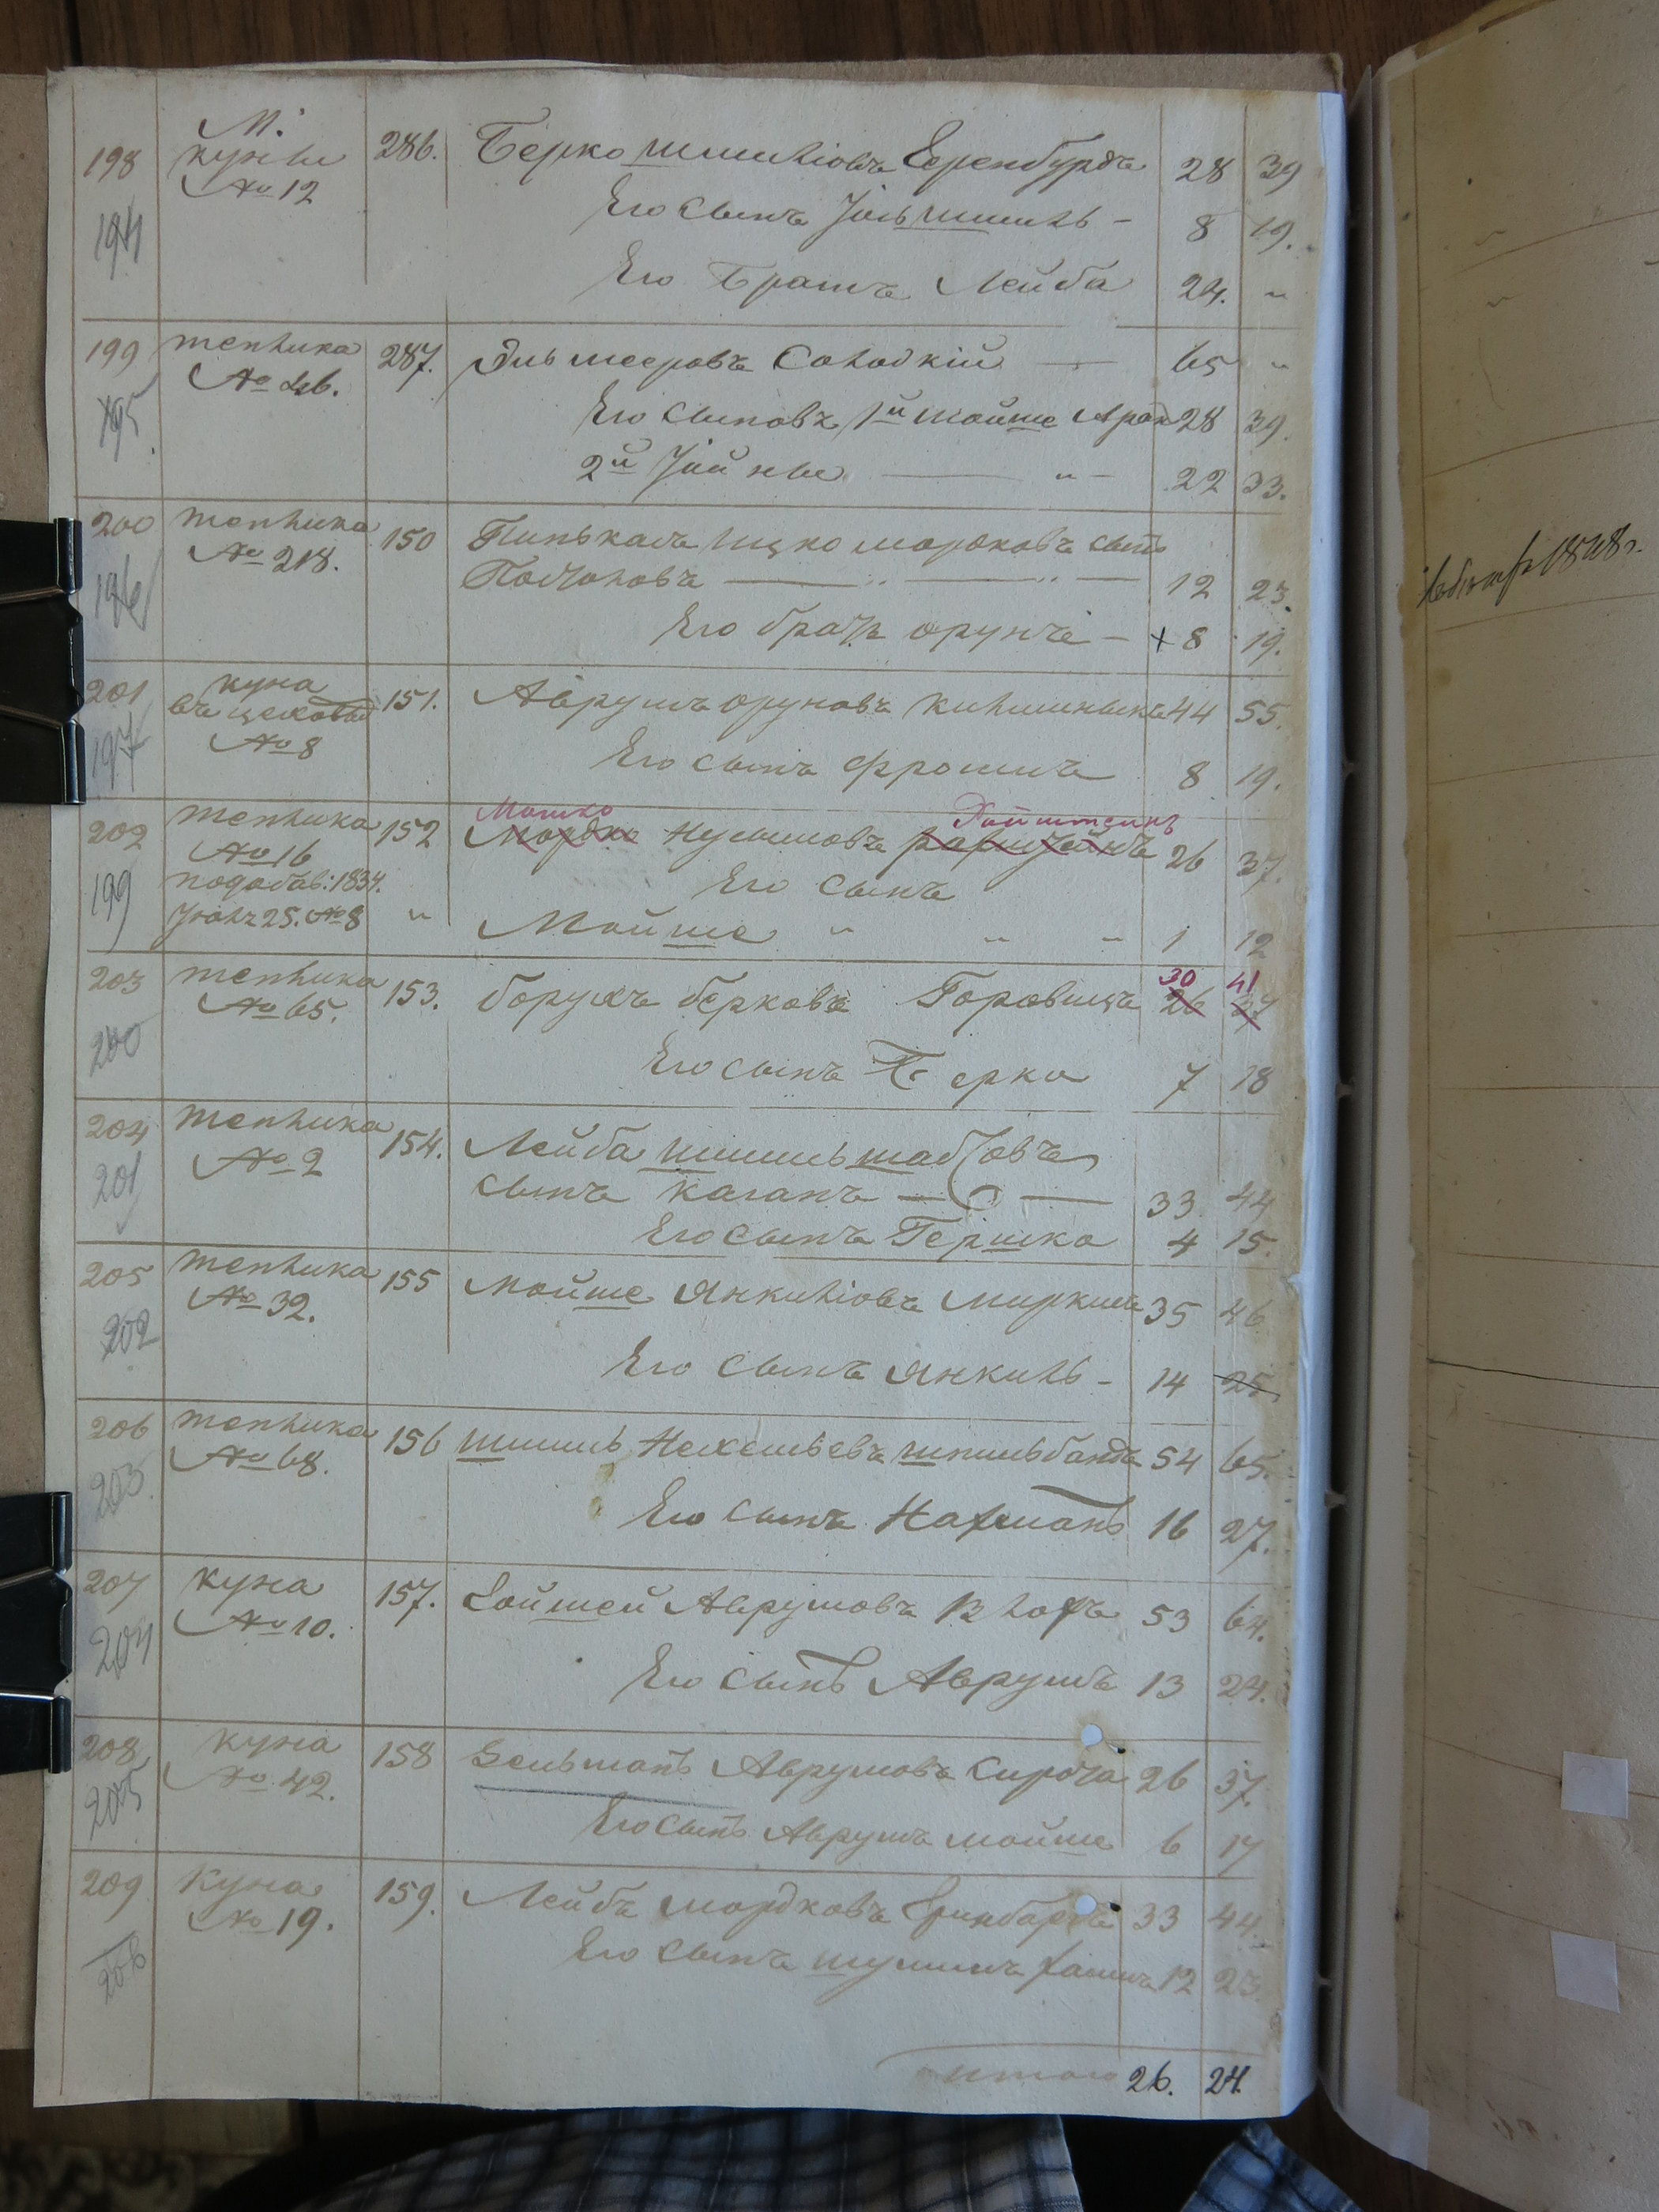 М.
198 куна 286. Берко Шмилiовъ Еренбургъ 28 39
№ 12
194 Его сынъ Iось Шмиль - 8 19.
Его Братъ Лейба 24. "
199 теплика 287. Эль мееровъ Солодкiй — 65 "
№ 46.
195 Его сыновъ 1й Мойше Аронъ 28 39.
2й Iойне — " - 22 33.
200 теплика 150 Пинькасъ Ицко мордковъ сынъ
№ 218.
196 — " — " — 12 23.
Его братъ орунъ - + 8 19.
201 куна 151. Аврумъ оруновъ 44 55.
въ цеховые
197 № 8
Его сынъ Фроимъ 8 19.
Мошко Файнштейнъ
202 теплика 152 Мордко Нусымовъ 26 37.
№ 16
199 подобав: 1834. Его сынъ
Iюля 25. №8 " Мойше " " " 1 12
30 41
203 теплика 153. борухъ берковъ Горовицъ 26 37
№ 65.
200 Его сынъ Берко 7 18
204 теплика 154. Лейба Шмиль
№ 2
201 сынъ каганъ — 33 44
Его сынъ Гершко 4 15.
205 теплика 155 Мойше Янкилiовъ 35 46
№ 32.
202 Его сынъ Янкиль - 14 25
206 теплика 156 Шмиль Нехемьевъ Шпильбандъ 54 65.
№ 68.
203 Его сынъ Нахманъ 16 27.
207 куна 157. Аврумовъ 53 64.
№ 10.
204 Его сынъ Аврумъ 13 24.
208 куна 158 Зельманъ Аврумовъ Сирота 26 37.
№ 42.
205 Его сынъ Аврумъ Мойше 6 17
209 куна 159. Лейбъ мордковъ Гринбергъ 33 44.
№ 19.
206 Его сынъ 12 23.
итого 26. 24.
1848г.